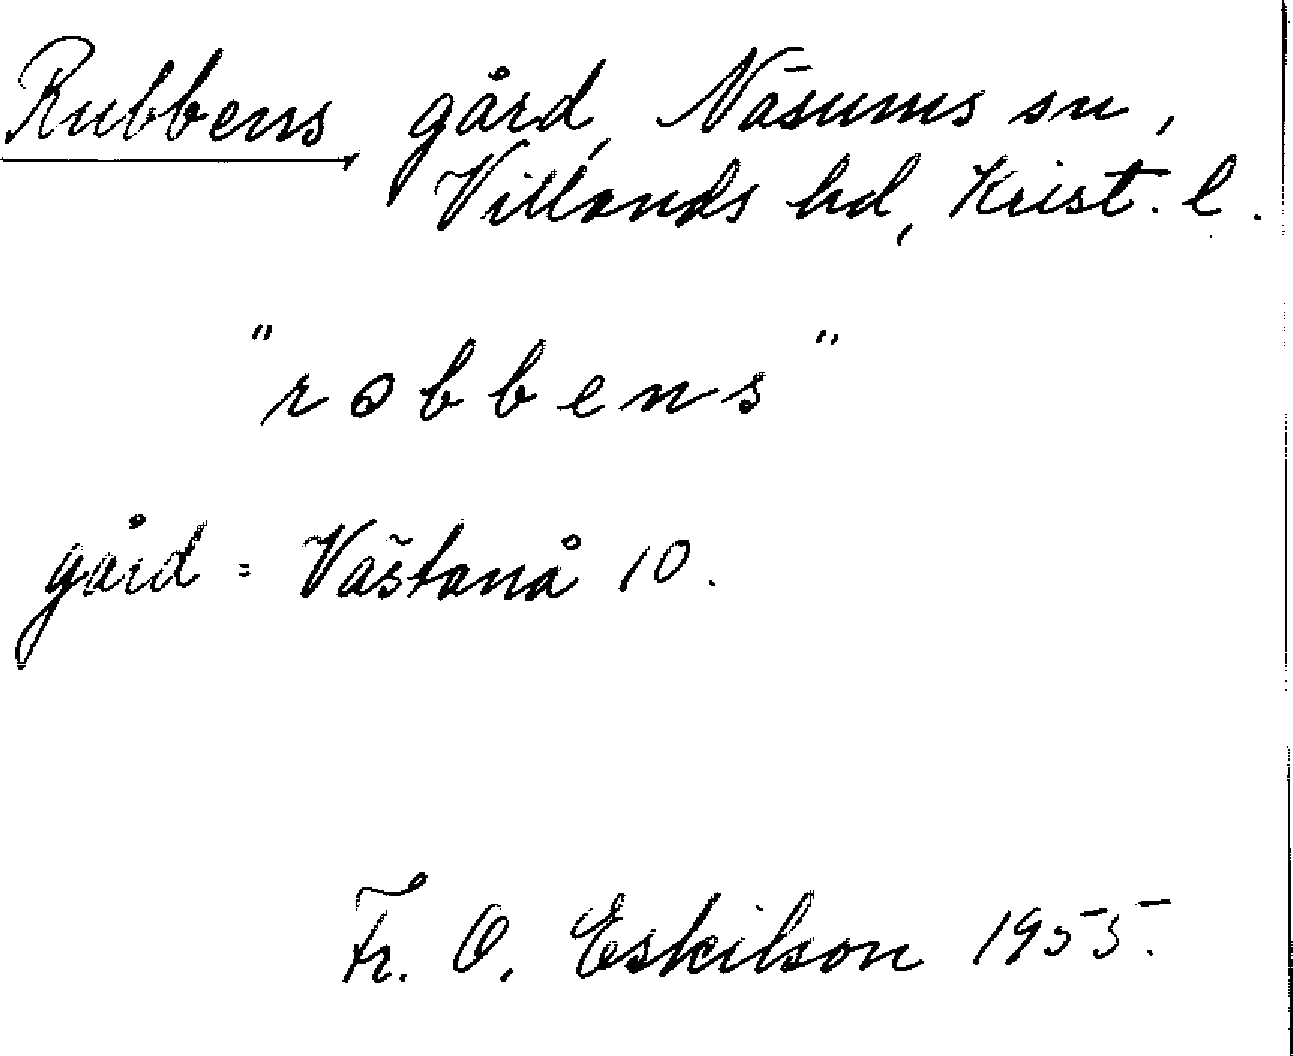 Rubbens, gård, Näsums sn,
Villands hd, Krist. l.
"robbens"
gård = Västanå 10.
Fr. O. Eskilson 1955.